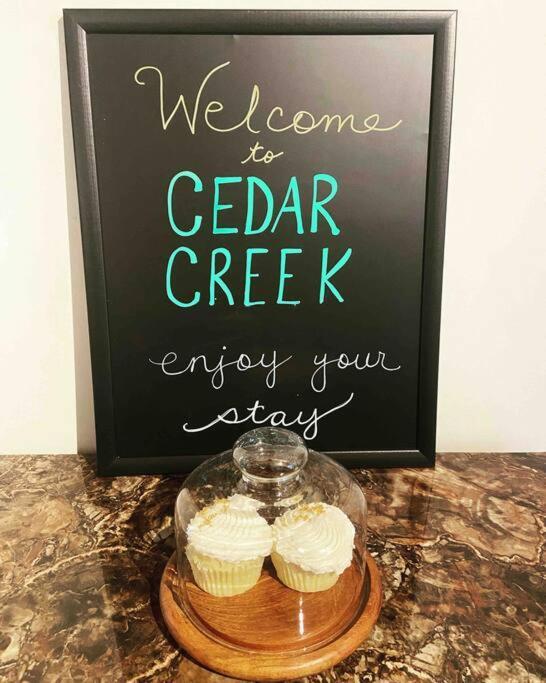 Welcome
to
CEDAR
CREEK
enjoy your
stay